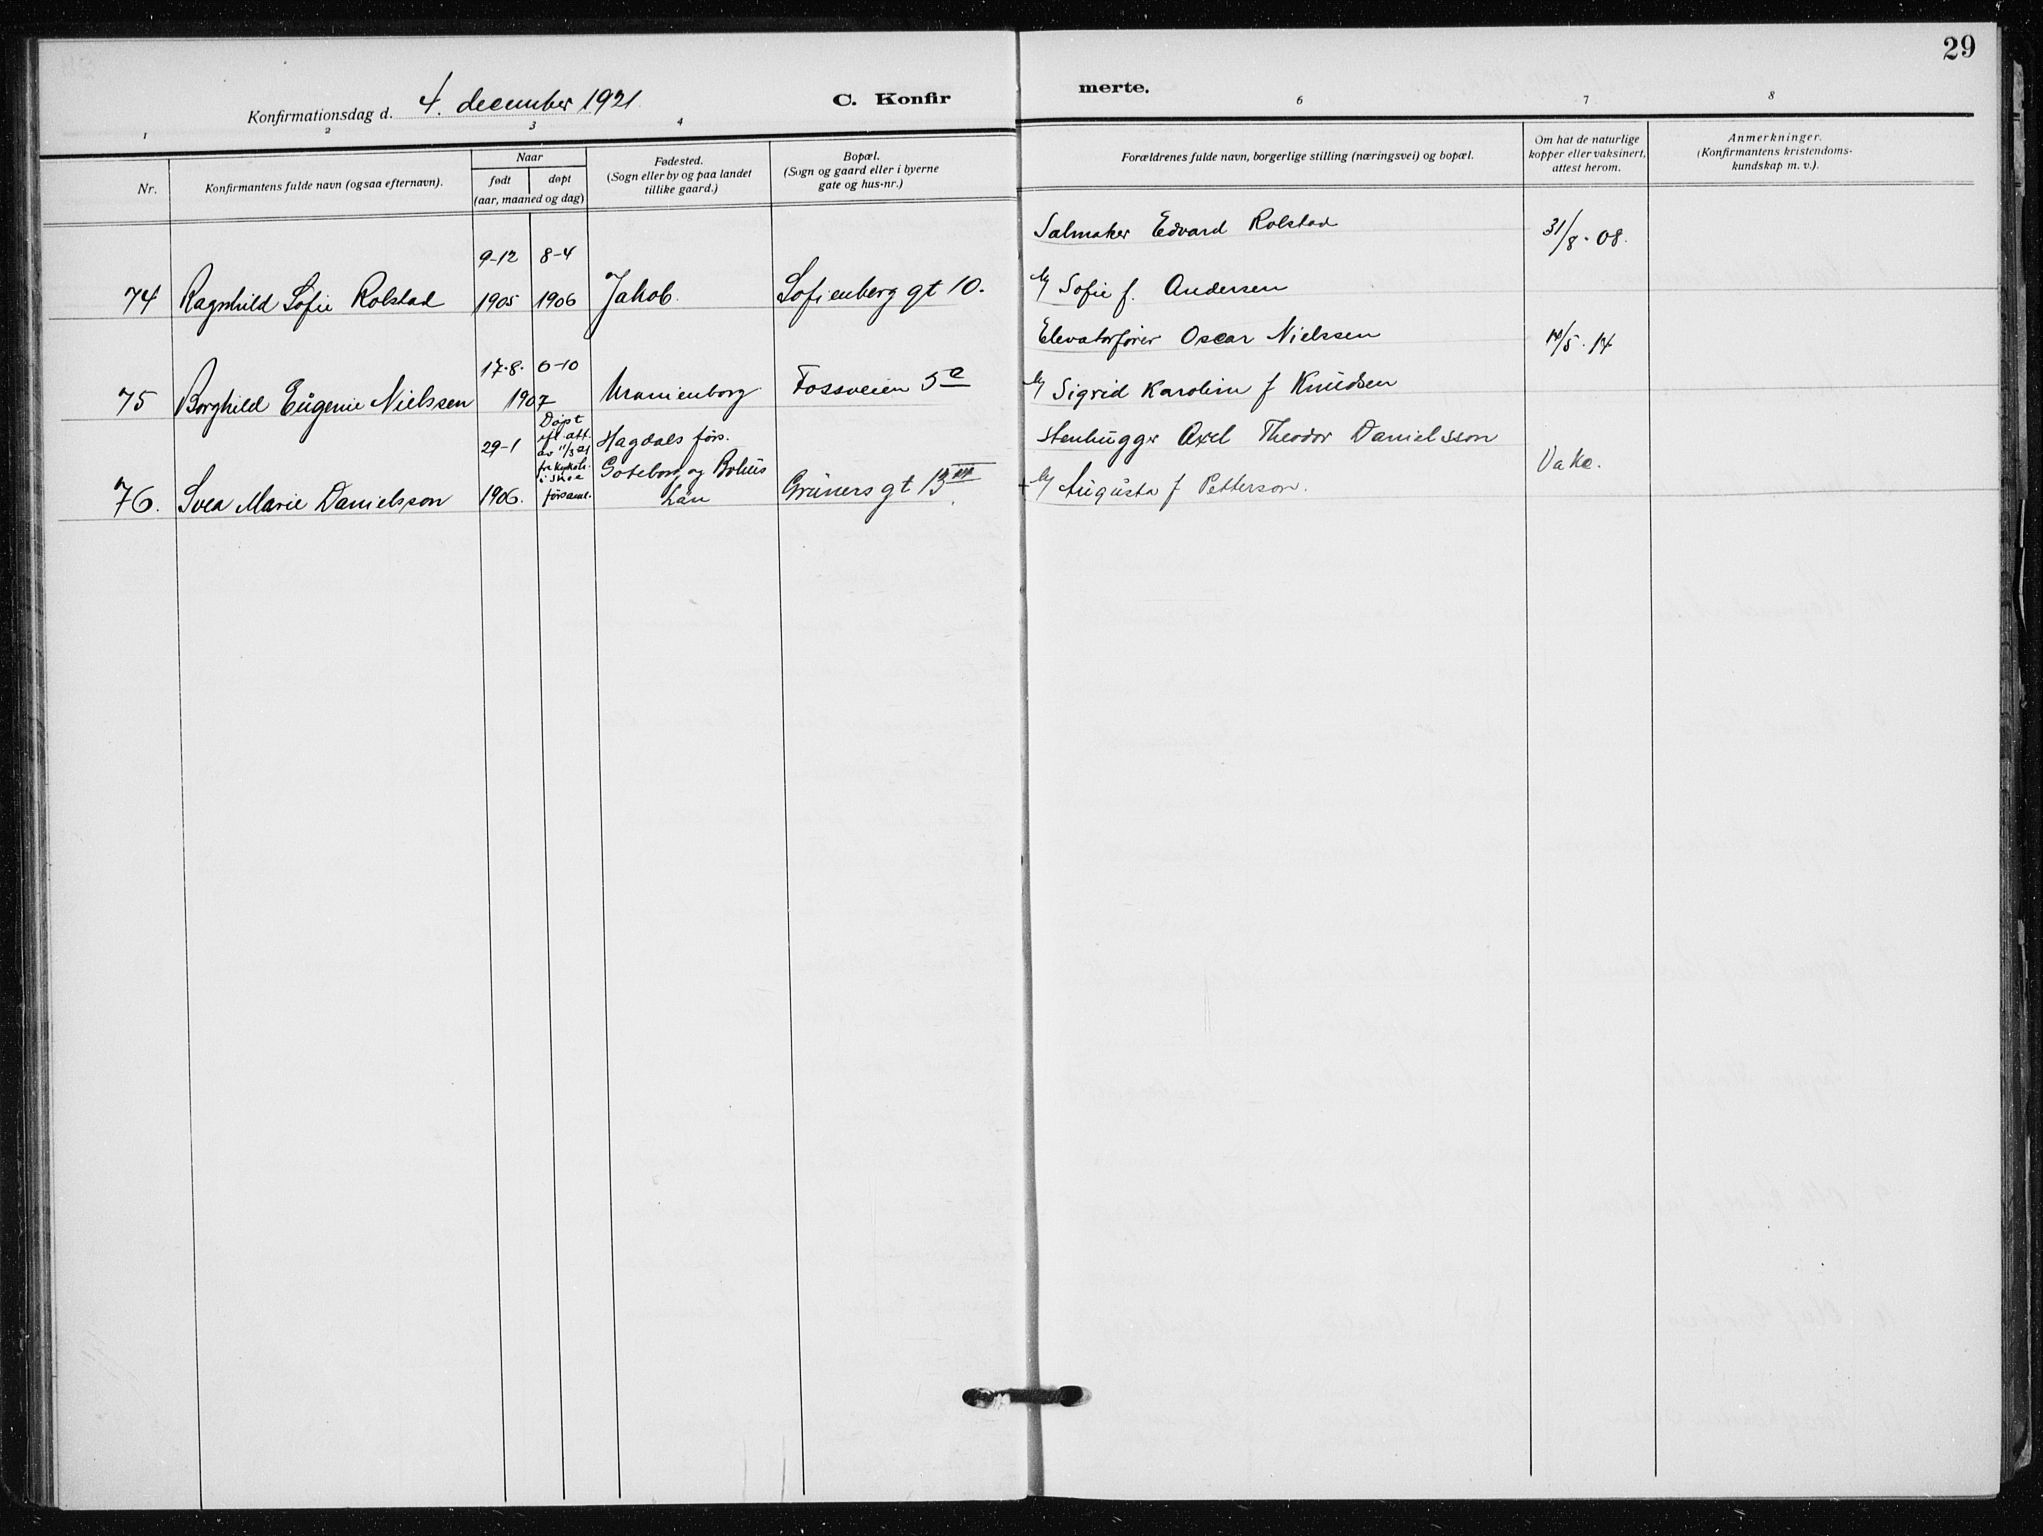 29
Konfirmationsdag d. 4. december 1921
C. Konfir
merte.
1 2 3 4 6 7 8
Nr.
Konfirmantens fulde navn (ogsaa efternavn).
Naar
født døpt
(aar, maaned og dag)
Fødested.
(Sogn eller by og paa landet
tillike gaard.)
Bopæl.
(Sogn og gaard eller i byerne
gate og hus-nr.)
Forældrenes fulde navn, borgerlige stilling (næringsvei) og bopæl.
Om hat de naturlige
kopper eller vaksinert,
attest herom.
Anmerkninger.
(Konfirmantens kristendoms-
kundskap m. v.).
9-12 8-4 Salmaker Edvard Rolstad 31/8-08.
74 Ragnhild Sofie Rolstad 1905 1906 Jakob. Sofienberg gt 10. Sofie f. Andersen
17-8. 6-10 Elevatorfører Oscar Nielssen
75 Borghild Eugenie Nielssen 1907 Uranienborg Fossveien 5 Sigrid Karolin f Knudsen
Døpt
29-1 att. av 11/3 21 Hagdals førs. Stenhugger Axel Theodor Danielsson
Göteborg og Bohus Vake.
76. Svea Marie Danielsson 1906. førsaml. Län Grüners gt 13 III Augusta f Petterson.